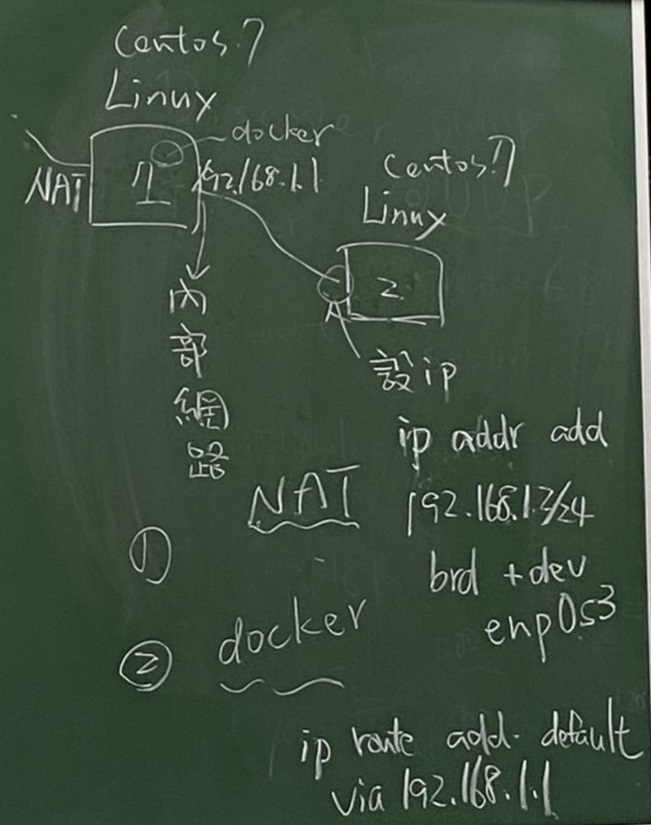 Centos7
Linux
docker
NAT
1
192.168.1.1
Centos7
Linux
2
內
部
網
路
設ip
ip addr add
NAT
192.168.1.2/24
①
brd + dev
enp0s3
② docker
ip route add default
via 192.168.1.1